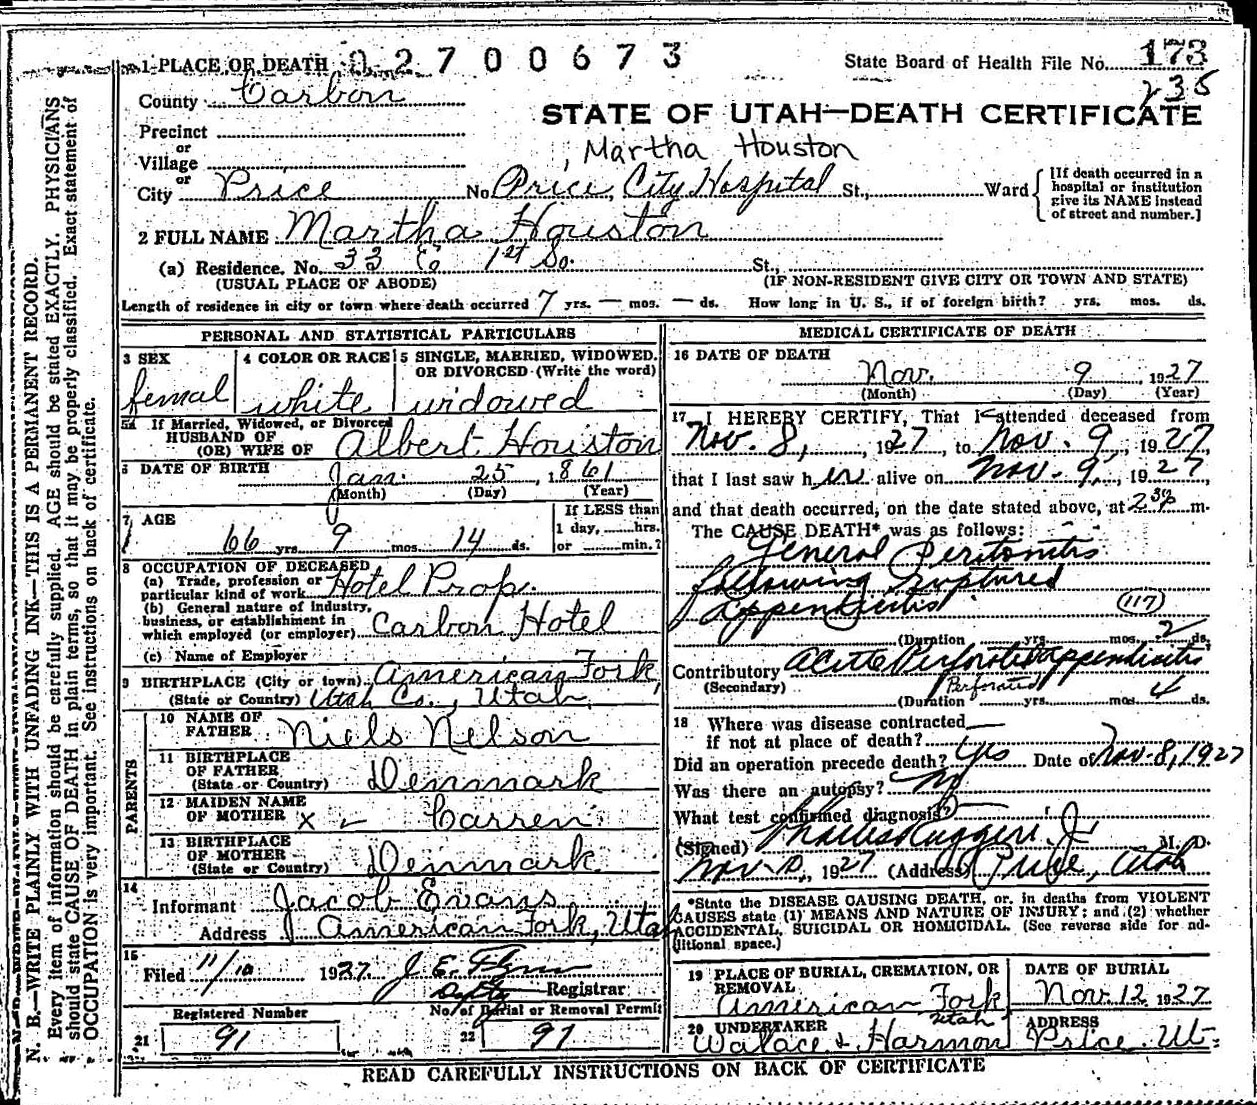 1 PLACE OF DEATH 02700673
State Board of Health File No. 173
235
County Carbon
STATE OF UTAH—DEATH CERTIFICATE
Precinct
or
Village
Martha Houston
or
City Price No Price, City Hospital St., Ward
[If death occurred in a hospital or institution give its NAME instead of street and number.]
2 FULL NAME Martha Houston
(a) Residence. No. 33 E 1st So. St.,
(USUAL PLACE OF ABODE) (IF NON-RESIDENT GIVE CITY OR TOWN AND STATE)
Length of residence in city or town where death occurred 7 yrs. — mos. — ds. How long in U. S., if of foreign birth? yrs. mos. ds.
PERSONAL AND STATISTICAL PARTICULARS
3 SEX
femal
4 COLOR OR RACE
white
5 SINGLE, MARRIED, WIDOWED.
OR DIVORCED (Write the word)
widowed
5a If Married, Widowed, or Divorced
HUSBAND OF
(OR) WIFE OF Albert Houston
6 DATE OF BIRTH Jan. 25, 1861
(Month) (Day) (Year)
7 AGE
66 yrs. 9 mos. 14 ds.
If LESS than
1 day, hrs.
or min.?
8 OCCUPATION OF DECEASED
(a) Trade, profession or
particular kind of work Hotel Prop.
(b) General nature of industry,
business, or establishment in
which employed (or employer) Carbon Hotel
(c) Name of Employer
9 BIRTHPLACE (City or town) American Fork,
(State or Country) Utah Co., Utah
PARENTS
10 NAME OF
FATHER Niels Nelson
11 BIRTHPLACE
OF FATHER
(State or Country) Denmark
12 MAIDEN NAME
OF MOTHER X Carren
13 BIRTHPLACE
OF MOTHER
(State or Country) Denmark
14
Informant Jacob Evans
Address American Fork, Utah
15
Filed 11/10 1927 J E Flynn
Registrar
Registered Number
21 91
No. of Burial or Removal Permit
22 91
MEDICAL CERTIFICATE OF DEATH
16 DATE OF DEATH
Nov. 9, 1927
(Month) (Day) (Year)
17 I HEREBY CERTIFY, That I attended deceased from
Nov. 8, 1927, to Nov. 9, 1927
that I last saw her alive on Nov. 9, 1927,
and that death occurred, on the date stated above, at 2 m.
The CAUSE DEATH* was as follows:
General Peritonitis
following ruptured
appendicitis (117)
(Duration yrs. mos. 2 ds.
Contributory acute Perforated appendicitis
(Secondary) Perforated
(Duration yrs. mos 4 ds.
18 Where was disease contracted
if not at place of death?
Did an operation precede death? yes Date of Nov. 8, 1927
Was there an autopsy? no
What test confirmed diagnosis?
(Signed) Charles Ruggeri Jr. M. D.
Nov 10, 1927 (Address) Price, Utah
*State the DISEASE CAUSING DEATH, or, in deaths from VIOLENT
CAUSES state (1) MEANS AND NATURE OF INJURY; and (2) whether
ACCIDENTAL, SUICIDAL OR HOMICIDAL. (See reverse side for ad-
ditional space.)
19 PLACE OF BURIAL, CREMATION, OR
REMOVAL
American Fork
Utah
DATE OF BURIAL
Nov. 12 1927
20 UNDERTAKER
Walace & Harmon
ADDRESS
Price Ut.
READ CAREFULLY INSTRUCTIONS ON BACK OF CERTIFICATE
N. B.—WRITE PLAINLY WITH UNFADING INK—THIS IS A PERMANENT RECORD.
Every item of information should be carefully supplied. AGE should be stated EXACTLY. PHYSICIANS
should state CAUSE OF DEATH in plain terms, so that it may be properly classified. Exact statement of
OCCUPATION is very important. See instructions on back of certificate.